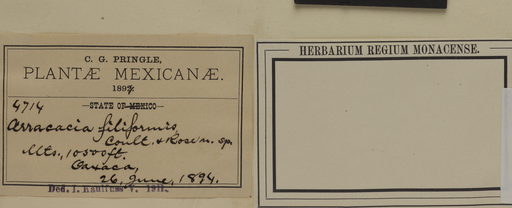 C. G. PRINGLE,
PLANTÆ MEXICANÆ.
1894
4714
—STATE OF MEXICO—
Arracacia filiformis
Coult. & Rose n. sp.
Mts., 10500 ft.
Oaxaca,
26, June, 1894.
Ded. I. Kaulfuss
HERBARIUM REGIUM MONACENSE.